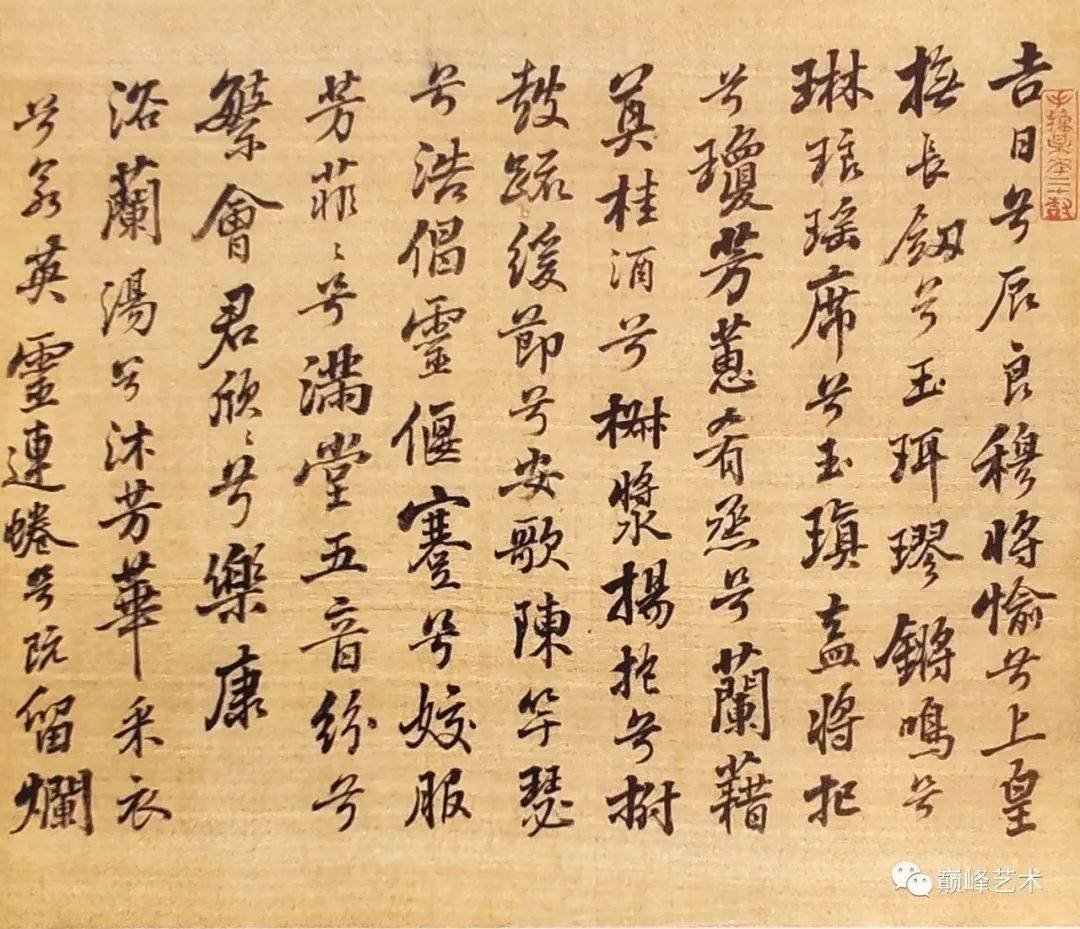 吉日兮辰良穆將愉兮上皇
撫長劔兮玉珥璆鏘鳴兮
琳琅瑶席兮玉瑱盍將把
兮瓊芳蕙肴烝兮蘭藉
奠桂酒兮椒漿揚枹兮拊
鼓疏緩節兮安歌陳竽瑟
兮浩倡靈偃蹇兮姣服
芳菲〻兮滿堂五音紛兮
繁會君欣〻兮樂康
浴蘭湯兮沐芳華采衣
兮若英靈連蜷兮既留爛
巅峰艺术